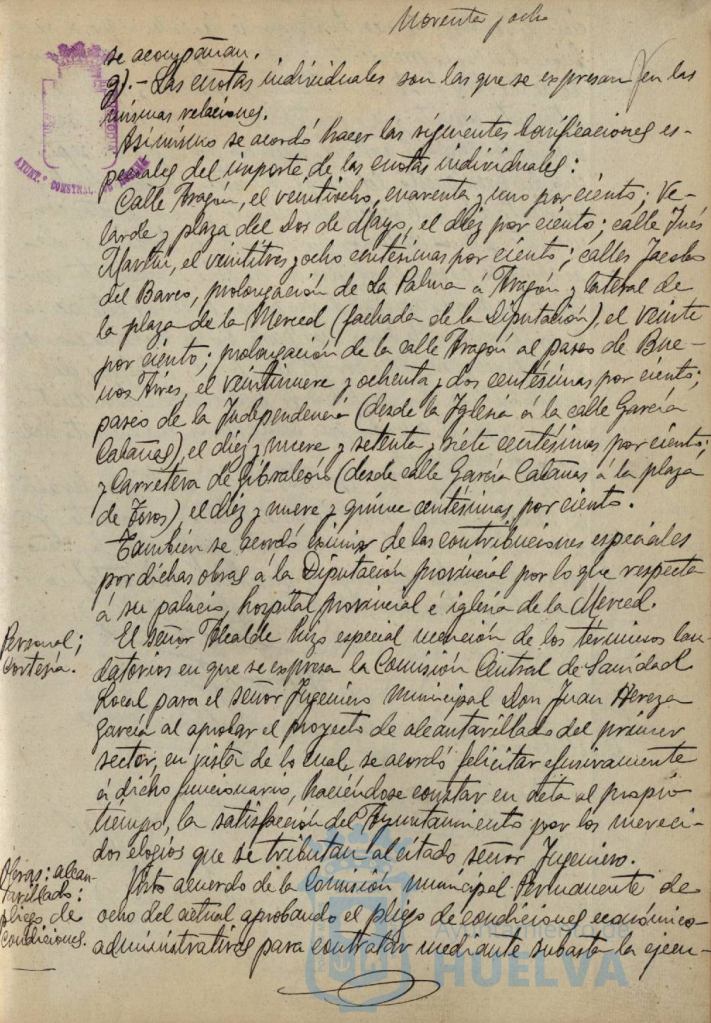 Noventa y ocho
se acompañan.
g).- Las cuotas individuales son las que se expresan en las
mismas relaciones.
Asimismo se acordó hacer las siguientes bonificaciones es-
peciales del importe de las cuotas individuales:
Calle Aragón, el veintiocho, cuarenta y uno por ciento; Ve-
larde y plaza del Dos de Mayo, el diez por ciento; calle Inés
Martín, el veintitres y ocho centésimas por ciento; calles Jacobo
del Barco, prolongación de La Palma á Aragón y lateral de
la plaza de la Merced (fachada de la Diputación), el veinte
por ciento; prolongación de la calle Aragón al paseo de Bue-
nos Aires, el veintinueve y ochenta y dos centésimas por ciento;
paseo de la Independencia (desde la Iglesia á la calle García
Cabañas), el diez y nueve y setenta y siete centésimas por ciento;
y Carretera de Gibraleón (desde calle García Cabañas á la plaza
de Toros), el diez y nueve y quince centésimas por ciento.
También se acordó eximir de las contribuciones especiales
por dichas obras á la Diputación provincial por lo que respecta
á su palacio, hospital provincial é iglesia de la Merced.
Personal;
cortesía.
El señor Alcalde hizo especial mención de los términos lau-
datorios en que se expresa la Comisión Central de Sanidad
Local para el señor Ingeniero municipal Don Juan Hereza
García al aprobar el proyecto de alcantarillado del primer
sector, en vista de lo cual, se acordó felicitar efusivamente
á dicho funcionario, haciéndose constar en acta al propio
tiempo, la satisfacción del Ayuntamiento por los mereci-
dos elogios que se tributan al citado señor Ingeniero.
Obras: alcan-
tarillado:
pliego de
condiciones.
Visto acuerdo de la Comisión municipal Permanente de
ocho del actual aprobando el pliego de condiciones económico-
administrativas para contratar mediante subasta la ejecu-
AYUNT.º CONSTNAL.
Ayuntamiento de
HUELVA